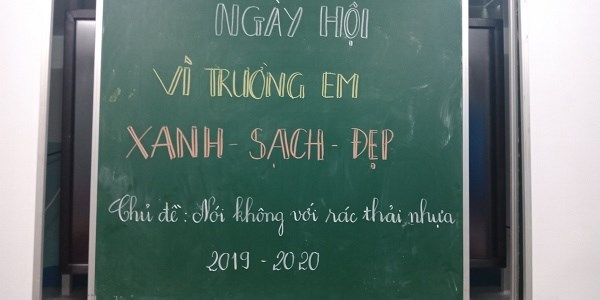 NGÀY HỘI
VÌ TRƯỜNG EM
XANH - SẠCH - ĐẸP
Chủ đề : Nói không với rác thải nhựa
2019 - 2020